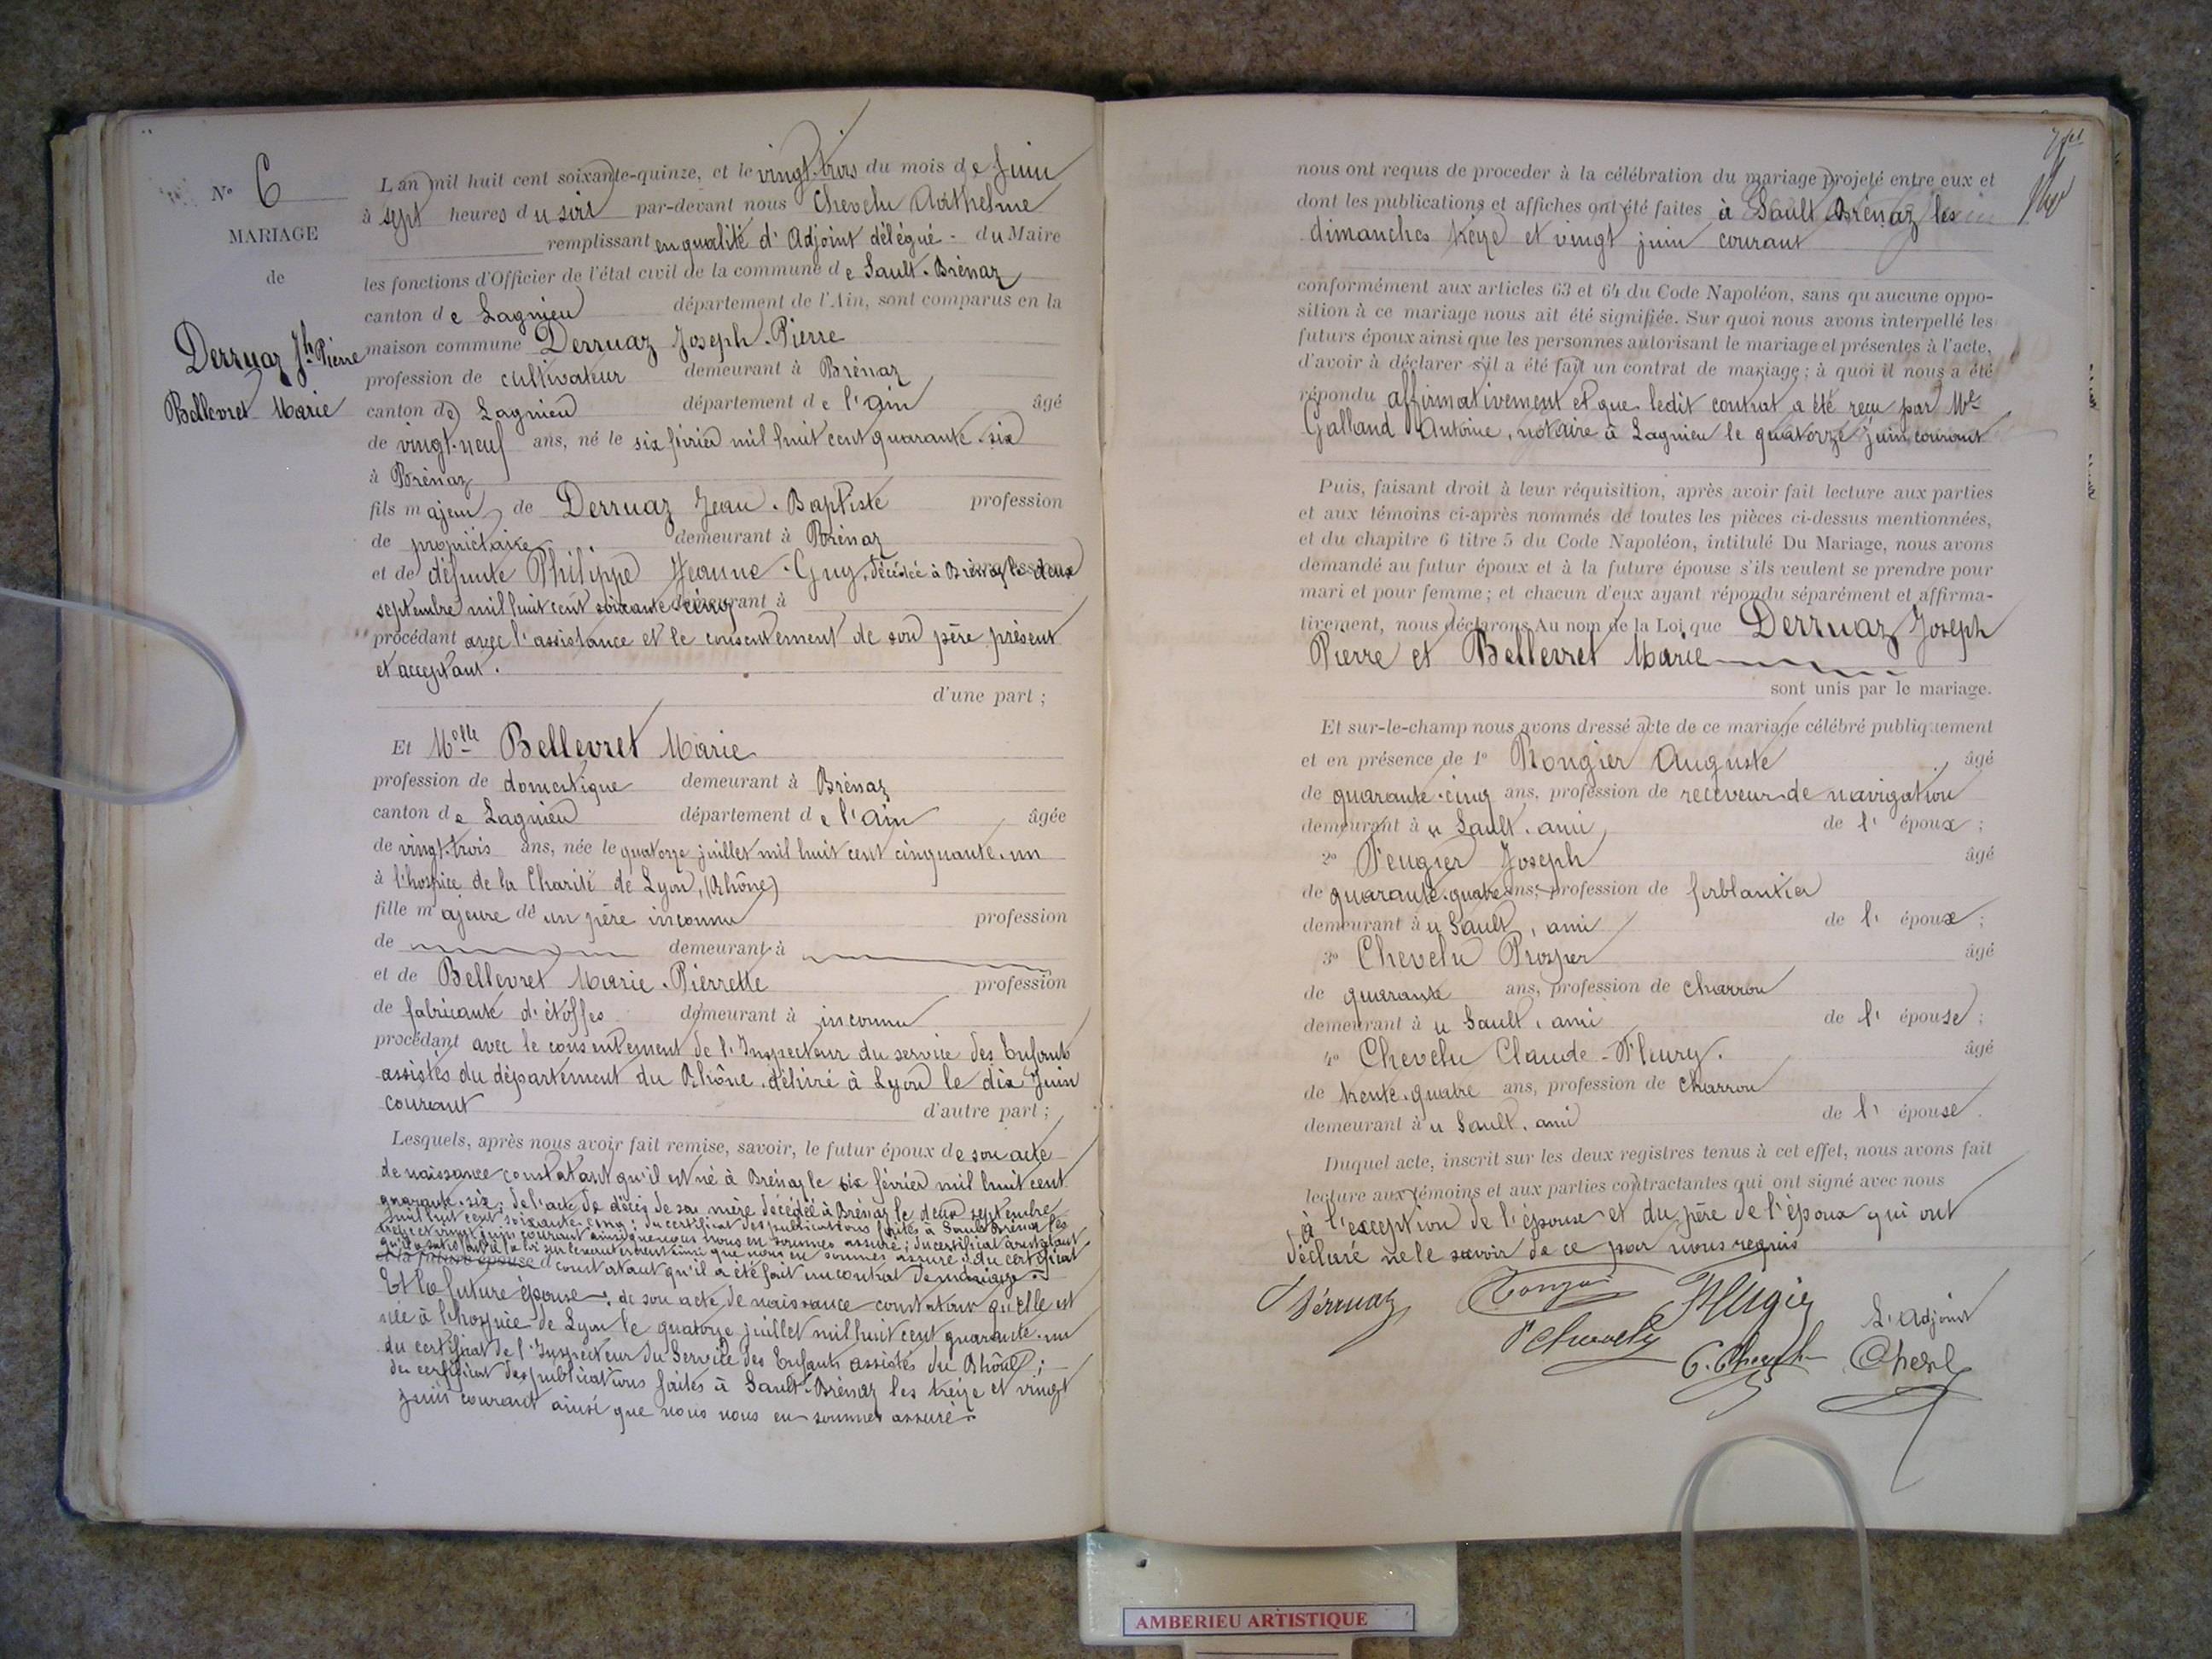 N° 6
MARIAGE
de
Derruaz Jh Pierre
Bellevret Marie
L'an mil huit cent soixante-quinze, et le vingt-trois du mois de Juin
à sept heures du soir par-devant nous Chevelu Anthelme
remplissant en qualité d'Adjoint délégué - du Maire
les fonctions d'Officier de l'état civil de la commune de Sault-Brénaz
canton de Lagnieu département de l'Ain, sont comparus en la
maison commune Derruaz Joseph-Pierre
profession de cultivateur demeurant à Brénaz
canton de Lagnieu département de l'Ain âgé
de vingt-neuf ans, né le six février mil huit cent quarante-six
à Brénaz
fils majeur de Derruaz Jean-Baptiste profession
de propriétaire demeurant à Brénaz
et de défunte Philippe Jeanne-Guy, décédée à Brénaz le deux
septembre mil huit cent soixante-cinq demeurant à
procédant avec l'assistance et le consentement de son père présent
et acceptant.
d'une part ;
Et Molle Bellevret Marie
profession de domestique demeurant à Brénaz
canton de Lagnieu département de l'Ain âgée
de vingt-trois ans, née le quatorze juillet mil huit cent cinquante-un
à l'hospice de la Charité de Lyon, (Rhône)
fille majeure de un père inconnu profession
de demeurant à
et de Bellevret Marie-Pierrette profession
de fabricante d'étoffes demeurant à inconnu
procédant avec le consentement de l'Inspecteur du service des Enfants
assistés du département du Rhône délivré à Lyon le dix Juin
courant d'autre part ;
Lesquels, après nous avoir fait remise, savoir, le futur époux de son acte
de naissance constatant qu'il est né à Brénaz le six février mil huit cent
quarante-six ; de l'acte de décès de sa mère décédée à Brénaz le deux septembre
mil huit cent soixante-cinq ; du certificat des publications faites à Sault-Brénaz les
treize et vingt juin courant ainsi que nous nous en sommes assuré ; du certificat constatant
qu'il a satisfait à la loi sur le recrutement ainsi que nous en sommes assuré ; du certificat
et la future épouse constatant qu'il a été fait un contrat de mariage.
Et la future épouse, de son acte de naissance constatant qu'elle est
née à l'hospice de Lyon le quatorze juillet mil huit cent quarante-un
du certificat de l'Inspecteur du Service des Enfants assistés du Rhône ;
du certificat des publications faites à Sault-Brénaz les treize et vingt
juin courant ainsi que nous nous en sommes assuré.
nous ont requis de proceder à la célébration du mariage projeté entre eux et
dont les publications et affiches ont été faites à Sault Brénaz les
dimanches treize et vingt juin courant
conformément aux articles 63 et 64 du Code Napoléon, sans qu'aucune oppo-
sition à ce mariage nous ait été signifiée. Sur quoi nous avons interpellé les
futurs époux ainsi que les personnes autorisant le mariage et présentes à l'acte,
d'avoir à déclarer s'il a été fait un contrat de mariage ; à quoi il nous a été
répondu affirmativement et que ledit contrat a été reçu par Me
Galland Antoine, notaire à Lagnieu le quatorze juin courant
Puis, faisant droit à leur réquisition, après avoir fait lecture aux parties
et aux témoins ci-après nommés de toutes les pièces ci-dessus mentionnées,
et du chapitre 6 titre 5 du Code Napoléon, intitulé Du Mariage, nous avons
demandé au futur époux et à la future épouse s'ils veulent se prendre pour
mari et pour femme ; et chacun d'eux ayant répondu séparément et affirma-
tivement, nous déclarons Au nom de la Loi que Derruaz Joseph
Pierre et Bellevret Marie
sont unis par le mariage.
Et sur-le-champ nous avons dressé acte de ce mariage célébré publiquement
et en présence de 1° Rougier Auguste âgé
de quarante-cinq ans, profession de receveur de navigation
demeurant à u Sault, ami de l' époux ;
2° Peugier Joseph âgé
de quarante-quatre ans, profession de ferblantier
demeurant à u Sault, ami de l' époux ;
3° Chevelu Prosper âgé
de quarante ans, profession de charron
demeurant à u Sault, ami de l' épouse ;
4° Chevelu Claude-Fleury. âgé
de trente-quatre ans, profession de charron
demeurant à u Sault, ami de l' épouse.
Duquel acte, inscrit sur les deux registres tenus à cet effet, nous avons fait
lecture aux témoins et aux parties contractantes qui ont signé avec nous
à l'exception de l'épouse et du père de l'époux qui ont
déclaré ne le savoir de ce par nous requis
Dérruaz
P Chevelu
C. Chevelu
L'Adjoint
AMBERIEU ARTISTIQUE